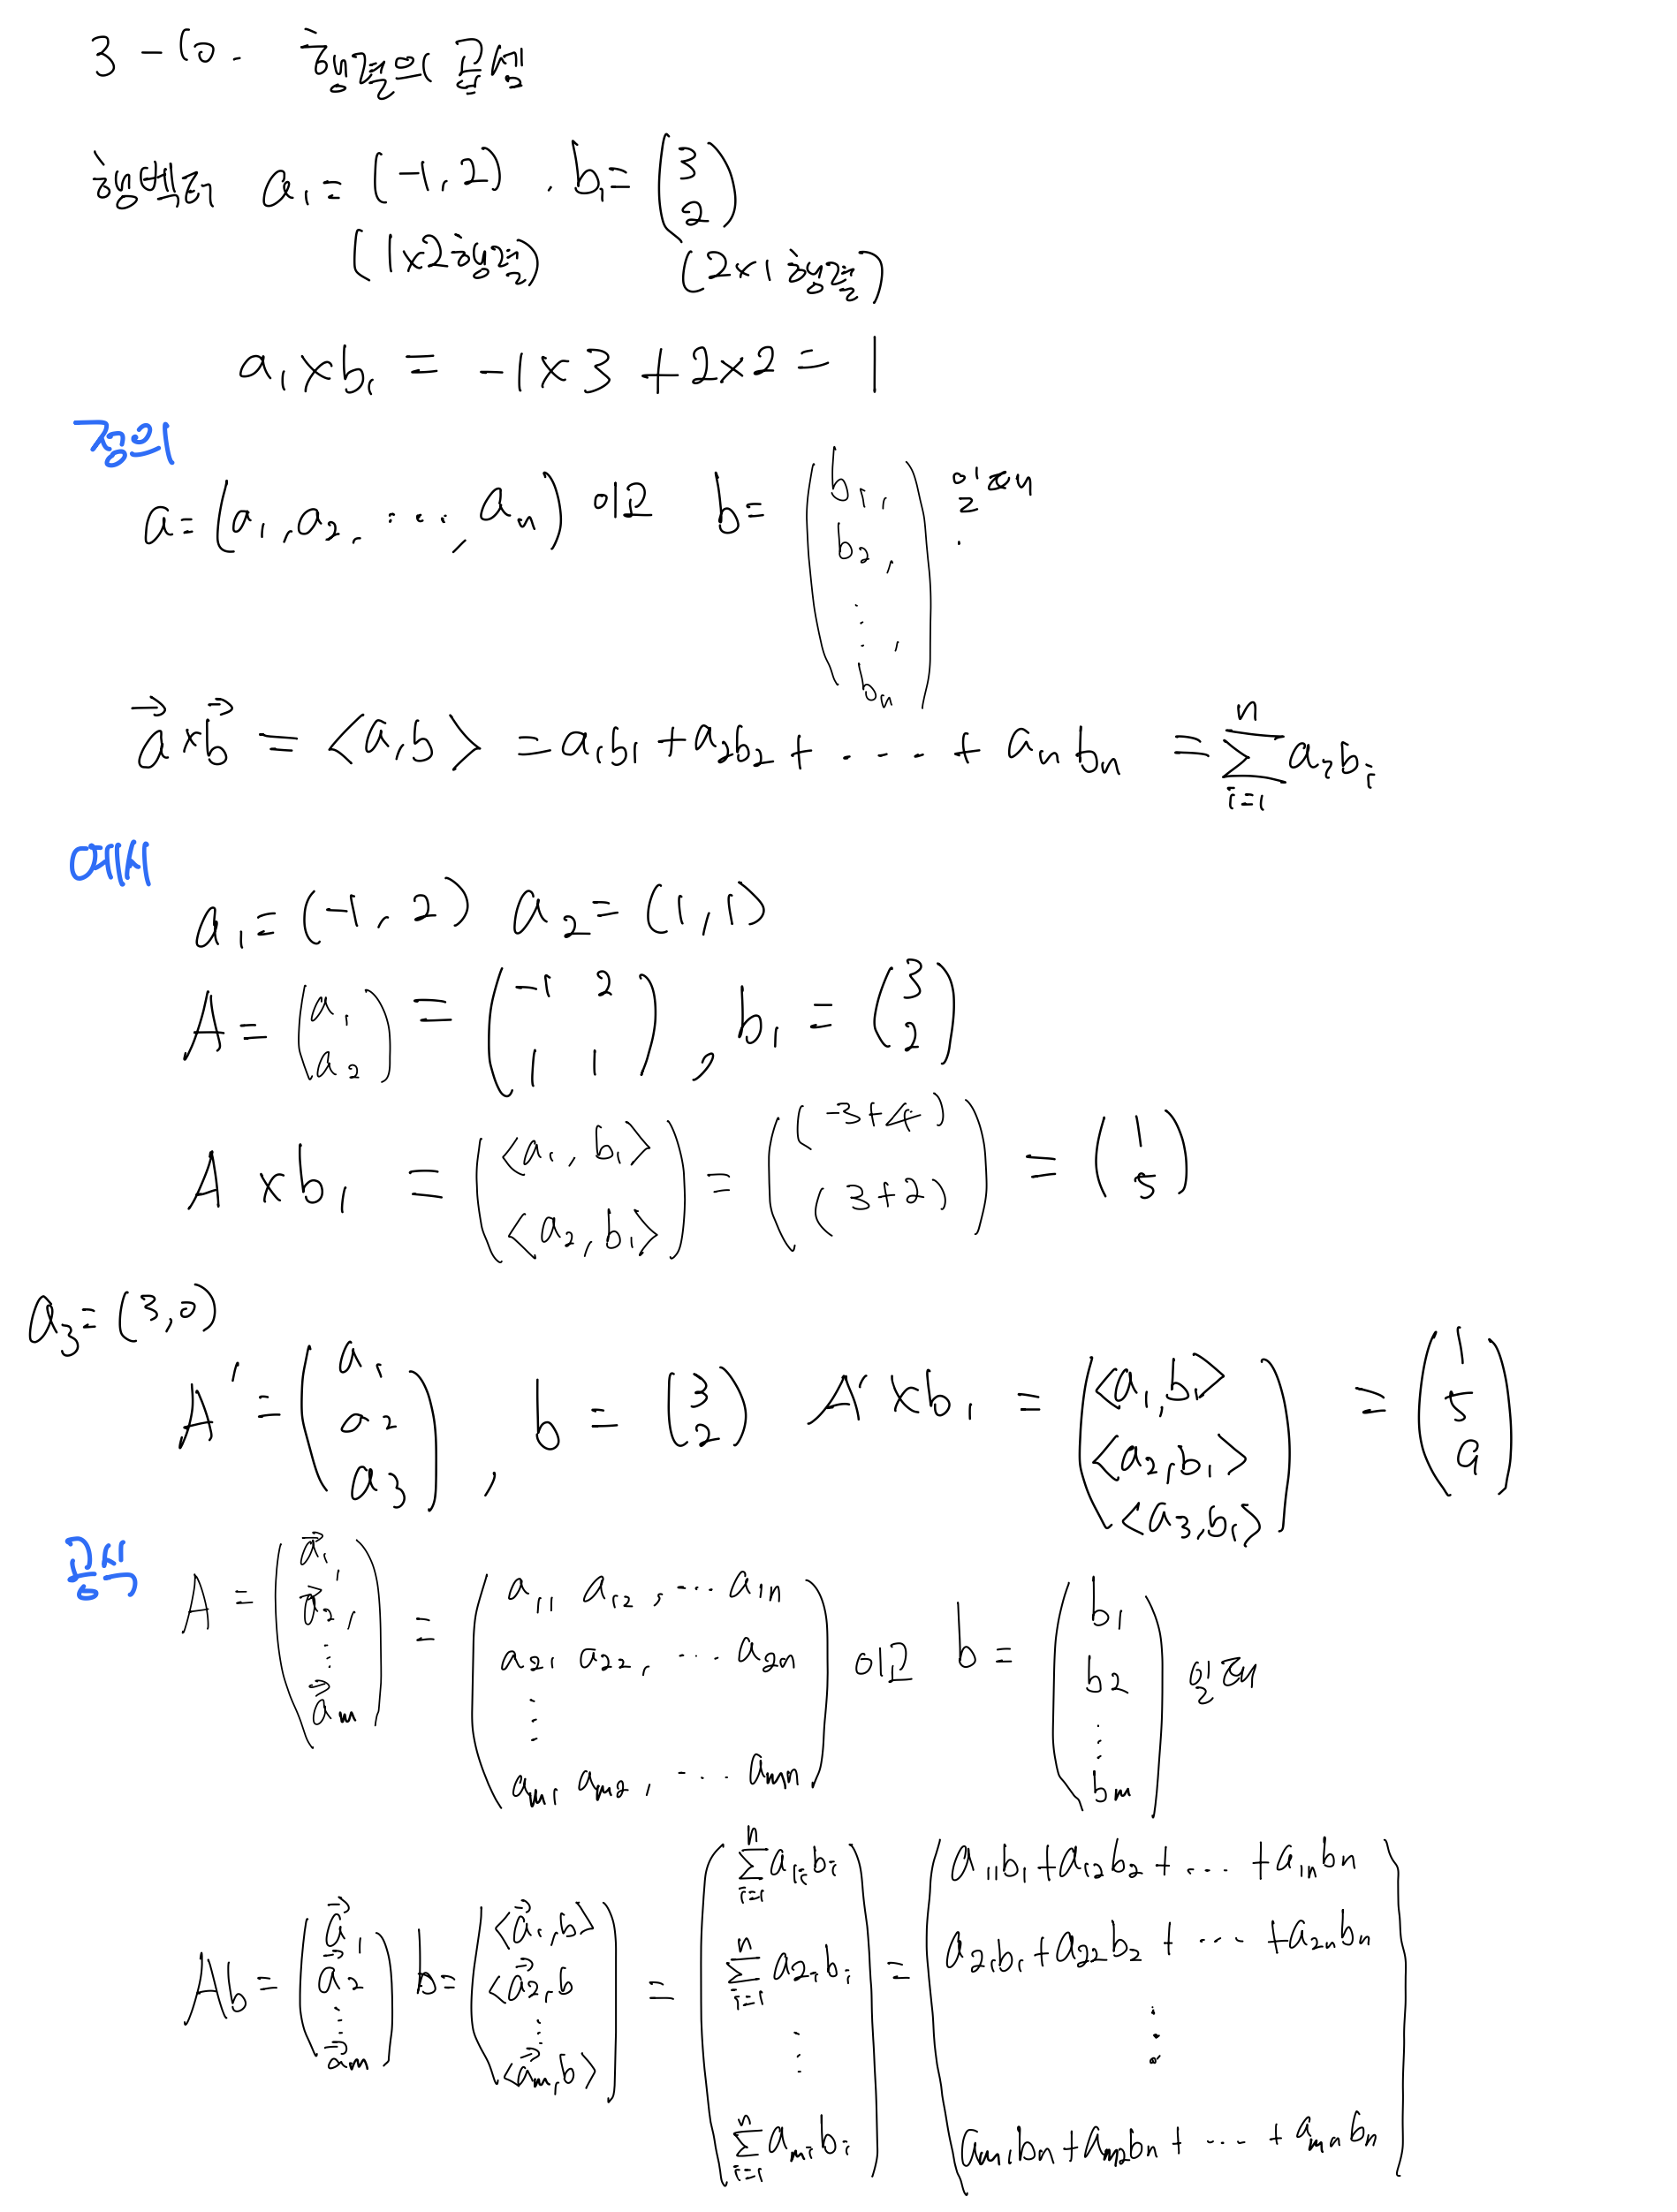 3-10. 행렬의 곱셈
행벡터 a₁ = (-1, 2) . b₁ = (3 2)
(1x2행렬) (2x1 행렬)
a₁ x b₁ = -1 x 3 + 2x2 = 1
정의
a = (a₁, a₂, ..., aₙ) 이고 b = (b₁, b₂, ⋮, bₙ) 일 때 .
a⃗ x b⃗ = <a, b> = a₁b₁ + a₂b₂ + .... + aₙbₙ = ∑ᵢ₌₁ⁿ aᵢbᵢ
예시
a₁ = (-1, 2) a₂ = (1, 1)
A = (a₁ a₂) = (-1 2 1 1) , b₁ = (3 2)
A x b₁ = (<a₁, b₁> <a₂, b₁>) = ((-3+4) (3+2)) = (1 5)
a₃ = (3, 0)
A' = (a₁ a₂ a₃) , b = (3 2) A' x b₁ = (<a₁, b₁> <a₂, b₁> <a₃, b₁>) = (1 5 9)
공식
A = (a⃗₁, a⃗₂, ⋮ a⃗ₘ) = (a₁₁, a₁₂, ... a₁ₙ a₂₁, a₂₂, ... a₂ₙ ⋮ aₘ₁, aₘ₂, ... aₘₙ) 이고 b = (b₁ b₂ ⋮ bₘ) 일 때
Ab = (a⃗₁ a⃗₂ ⋮ a⃗ₘ) b = (<a⃗₁, b> <a⃗₂, b ⋮ <a⃗ₘ, b>) = (∑ᵢ₌₁ⁿ a₁ᵢbᵢ ∑ᵢ₌₁ⁿ a₂ᵢbᵢ ⋮ ∑ᵢ₌₁ⁿ aₘᵢbᵢ) = (a₁₁b₁ + a₁₂b₂ + ... + a₁ₙbₙ a₂₁b₁ + a₂₂b₂ + ... + a₂ₙbₙ ⋮ aₘ₁bₙ + aₘ₂bₙ + ... + aₘₙbₙ)